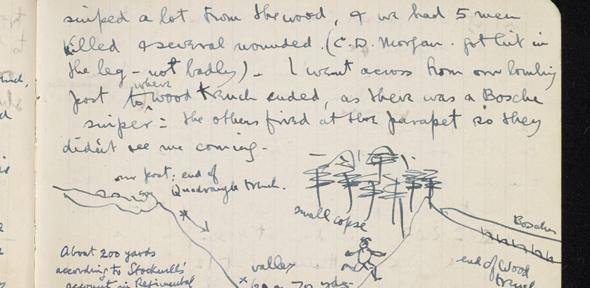 sniped a lot from the wood, & we had 5 men
killed & several wounded. (C.D. Morgan. got hit in
the leg - not badly) - I went across from our bombing
post to where wood trench ended, as there was a Bosche
sniper: the others fired at the parapet so they
didn't see me coming.
our post: end of
Quadrangle trench.
small copse
Bosches
end of Wood
trench
About 200 yards
according to Stockwell's
account in Regimental
valley